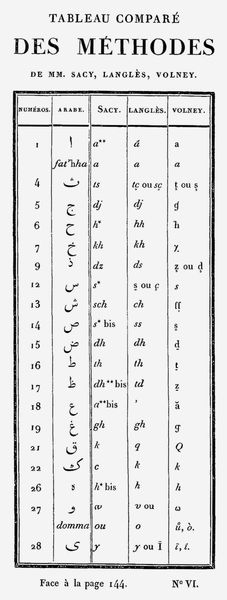 TABLEAU COMPARÉ
DES MÉTHODES
DE MM. SACY, LANGLÈS, VOLNEY.
NUMÉROS. ARABE. SACY. LANGLÈS. VOLNEY.
1 ا a** á a
fat'hha a a a
4 ث ts tç ou sç
5 ج dj dj
6 ح h* hh h
7 خ kh kh χ
9 ذ dz ds
12 س s* ş ou ç s
13 ش sch ch ſſ
14 ص s* bis ss
15 ض dh dh
16 ط th th ţ
17 ظ dh** bis td
18 ع a** bis ' ă
19 غ gh gh
21 ق k q Q
22 ك c k k
26 ه h* bis h h
27 و w v ou ω
domma ou o
28 ى y y ou Ī
Face à la page 144. Nº VI.